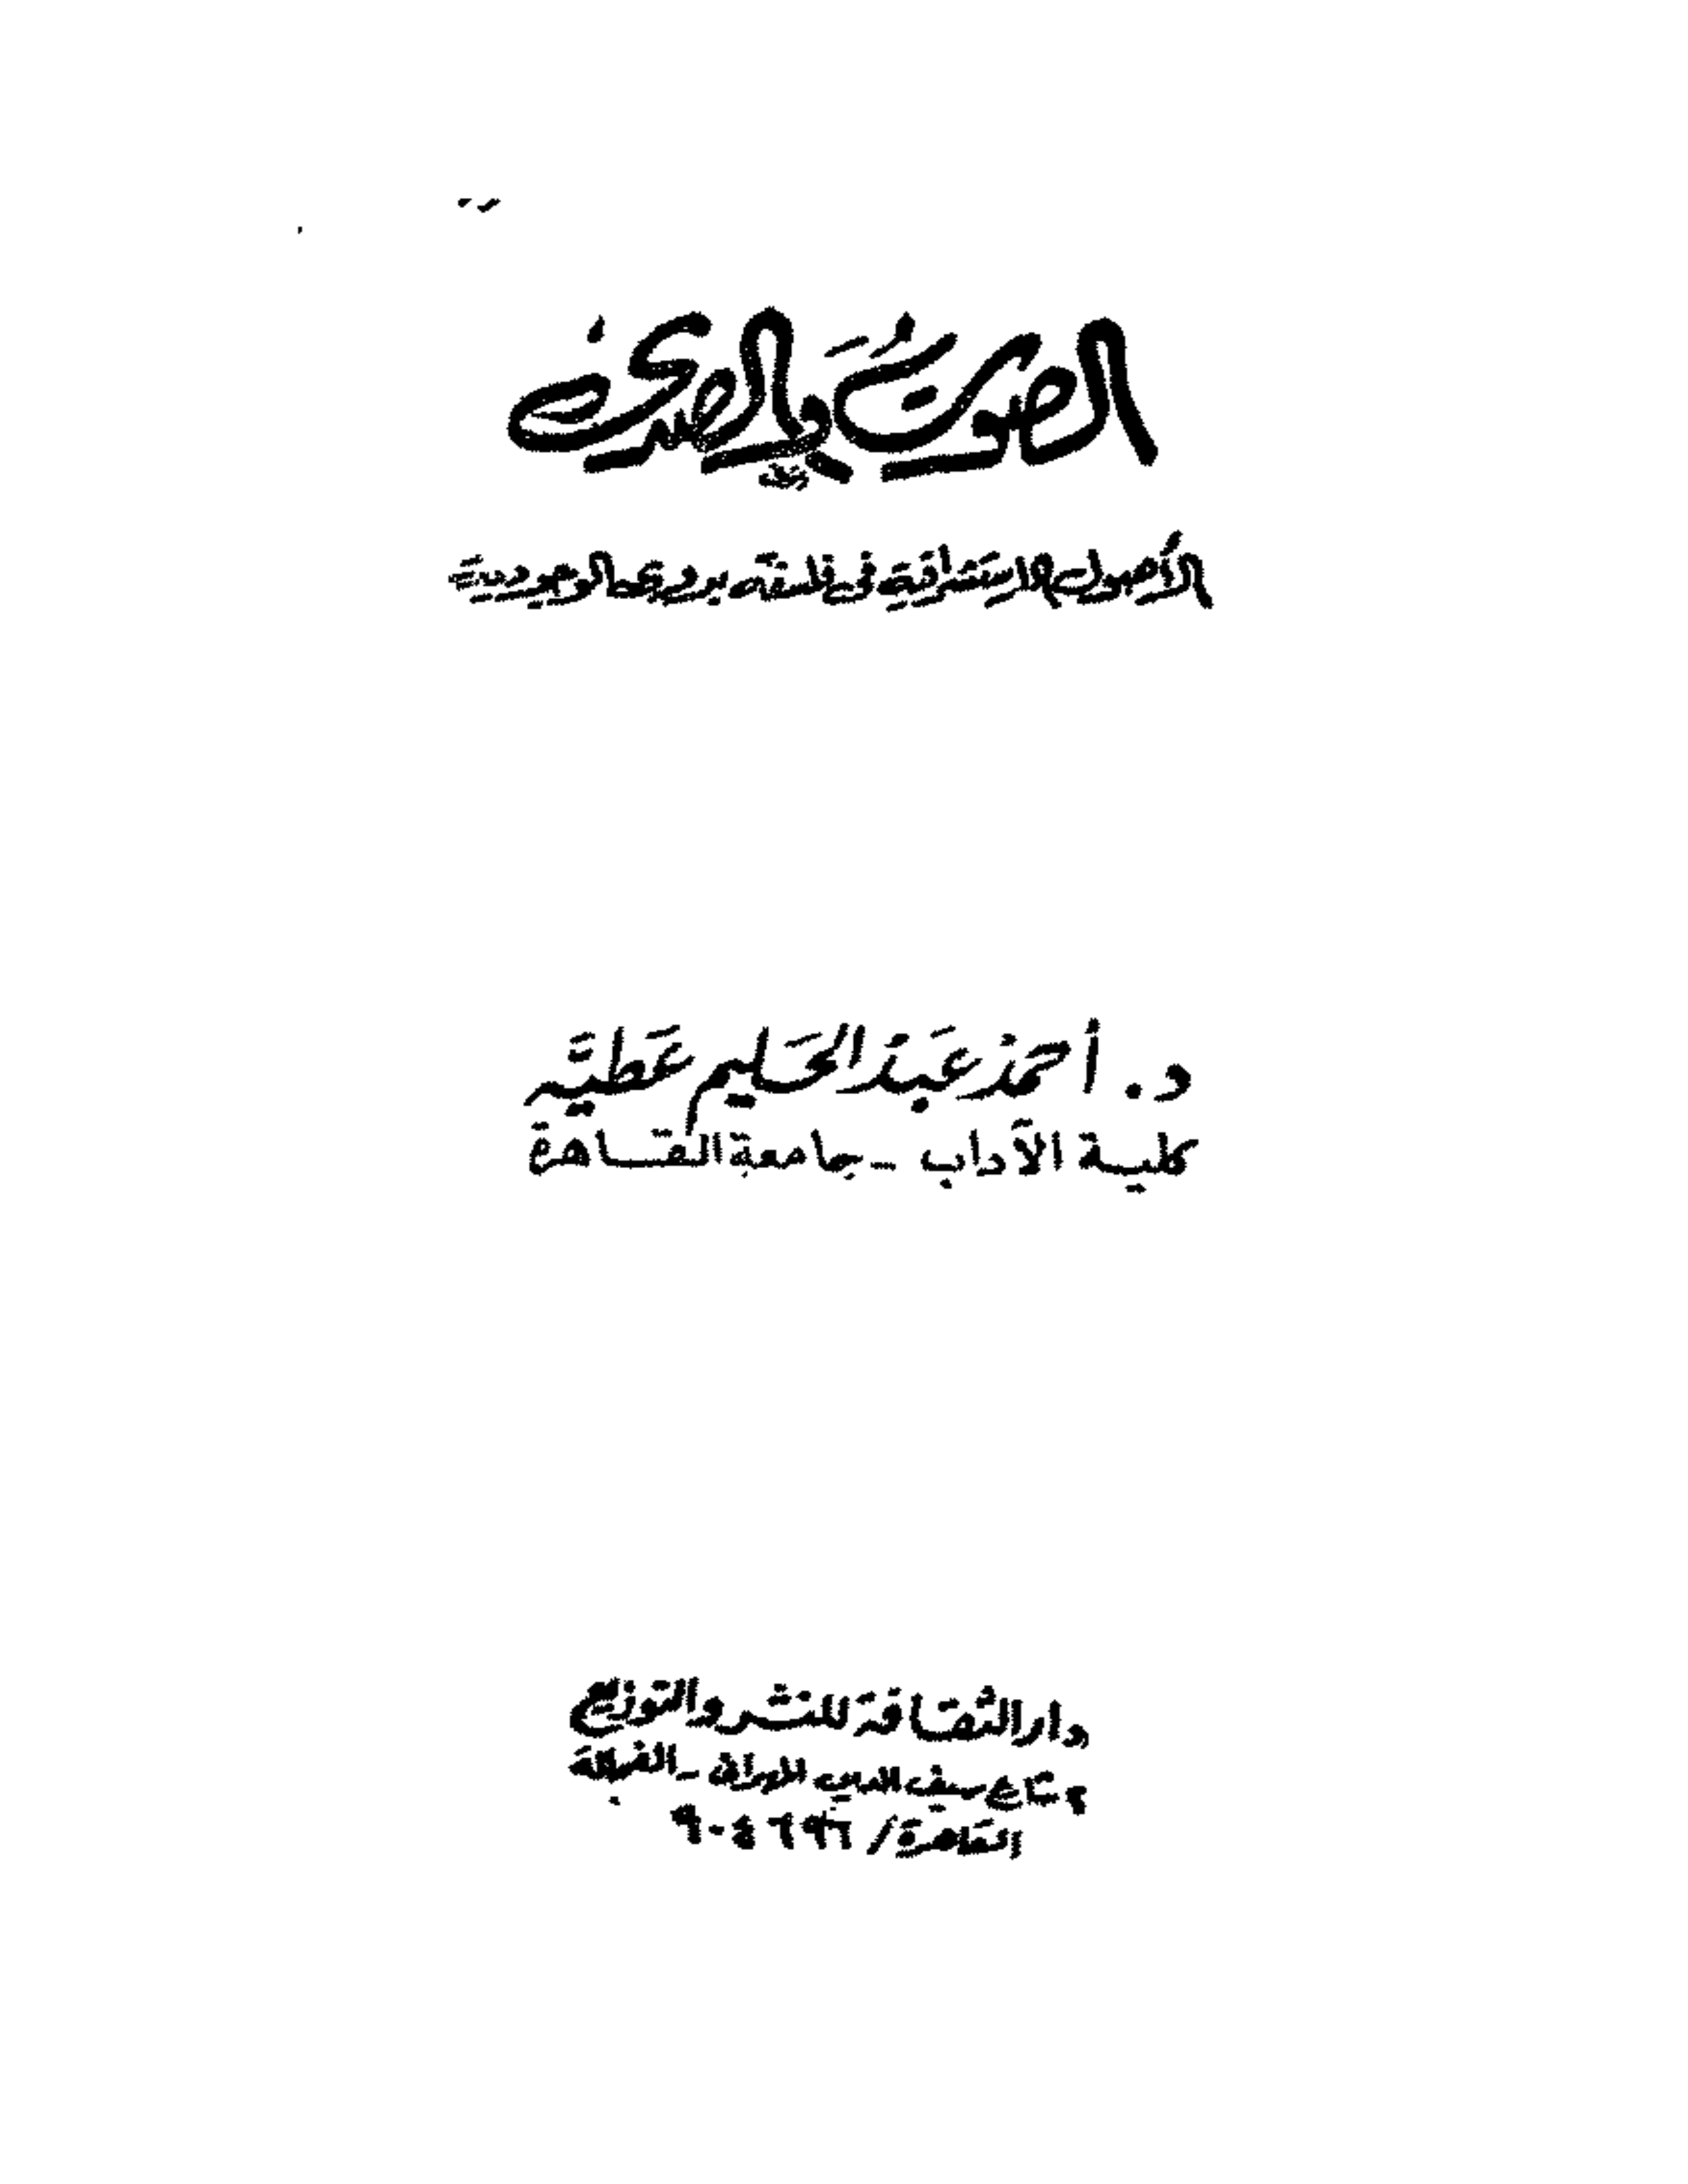 الصوت والصدى
الأصول الاستشراقية في فلسفة بدوي الوجودية
د. أحمد عبد الحليم عطية
كلية الآداب - جامعة القاهرة
دار الثقافة للنشر والتوزيع
٢ شارع سيف الدين المهراني - الفجالة
القاهرة / ٩٠٤٦٩٦